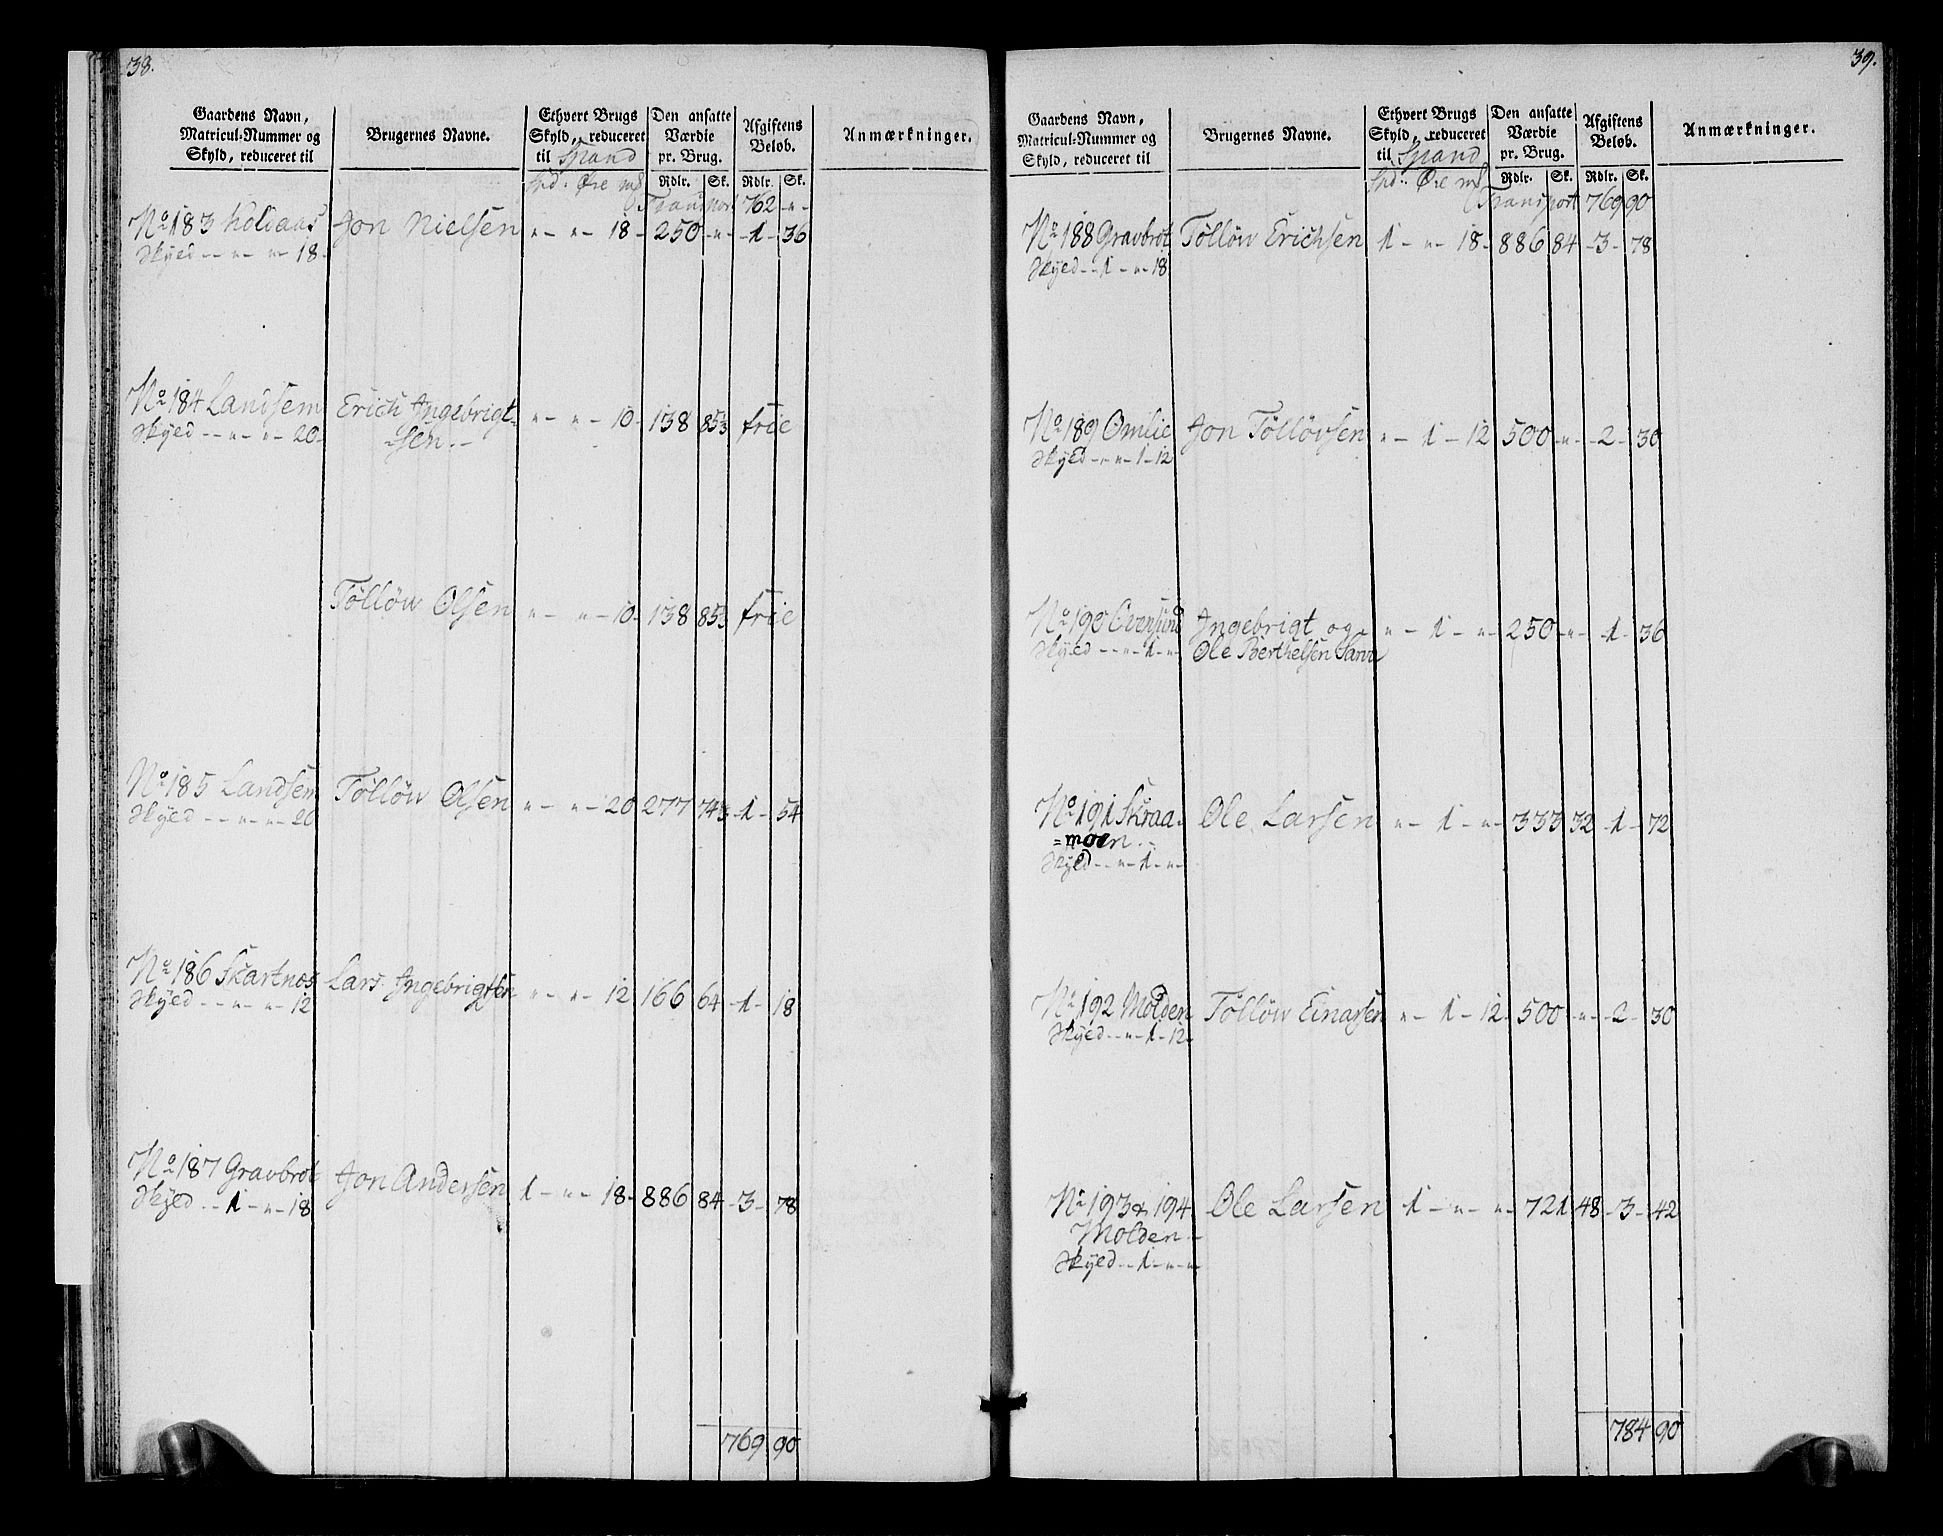 38.
Gaardens Navn, Matricul-Nummer og Skyld, reduceret til | Brugernes Navne. | Ethvert Brugs Skyld, reduceret til Spand | Den ansatte Værdie pr. Brug. | Afgiftens Beløb. | Anmærkninger.
Spd. Øre mℓ | Rdlr. | Sk. | Rdlr. | Sk.
Transport 762 - " -
No 183 Kolsaas Jon Nielsen " - " - 18 - 250 - " - 1 - 36
Skyld - - " - " - 18 -
No 184 Landsem Erich Ingebrigt- " - " - 10 - 138 85⅓ frie
Skyld - - " - " - 20 - -sen. -
Tølløw Olsen " - " - 10 - 138 85⅓ frie
No 185 Landsem Tølløw Olsen " - " - 20 277 74⅔ - 1 - 54
Skyld - - " - " - 20
No 186 Skartnos Lars Ingebrigtsen " - " - 12 166 64 - 1 - 18
Skyld - - " - " - 12
No 187 Gravbrot Jon Andersen 1 - " - 18 - 886 84 - 3 - 78
Skyld - - 1 - " - 18
769 90
39.
Gaardens Navn, Matricul-Nummer og Skyld, reduceret til | Brugernes Navne. | Ethvert Brugs Skyld, reduceret til Spand | Den ansatte Værdie pr. Brug. | Afgiftens Beløb. | Anmærkninger.
Spd. Øre mℓ | Rdlr. | Sk. | Rdlr. | Sk.
Transport 769 90
No 188 Gravbrot Tølløw Erichsen 1 - " - 18 - 886 84 - 3 - 78
Skyld - - 1 - " - 18
No 189 Omlie Jon Tølløvsen " - 1 - 12 500 - " - 2 - 30
Skyld - - " - 1 - 12
No 190 Oversund Ingebrigt og " - 1 - " - 250 - " - 1 - 36
Skyld - - " - 1 - " - Ole Berthelsen
No 191 Skraa- Ole Larsen " - 1 - " - 333 32 - 1 - 72
=moen. -
Skyld - - " - 1 - " -
No 192 Molden Tølløw Einarsen " - 1 - 12 - 500 - " - 2 - 30
Skyld - - " - 1 - 12 -
No 193 & 194 Ole Larsen 1 - " - " - 721 48 - 3 - 42
Molden -
Skyld - - 1 - " - " -
784 90